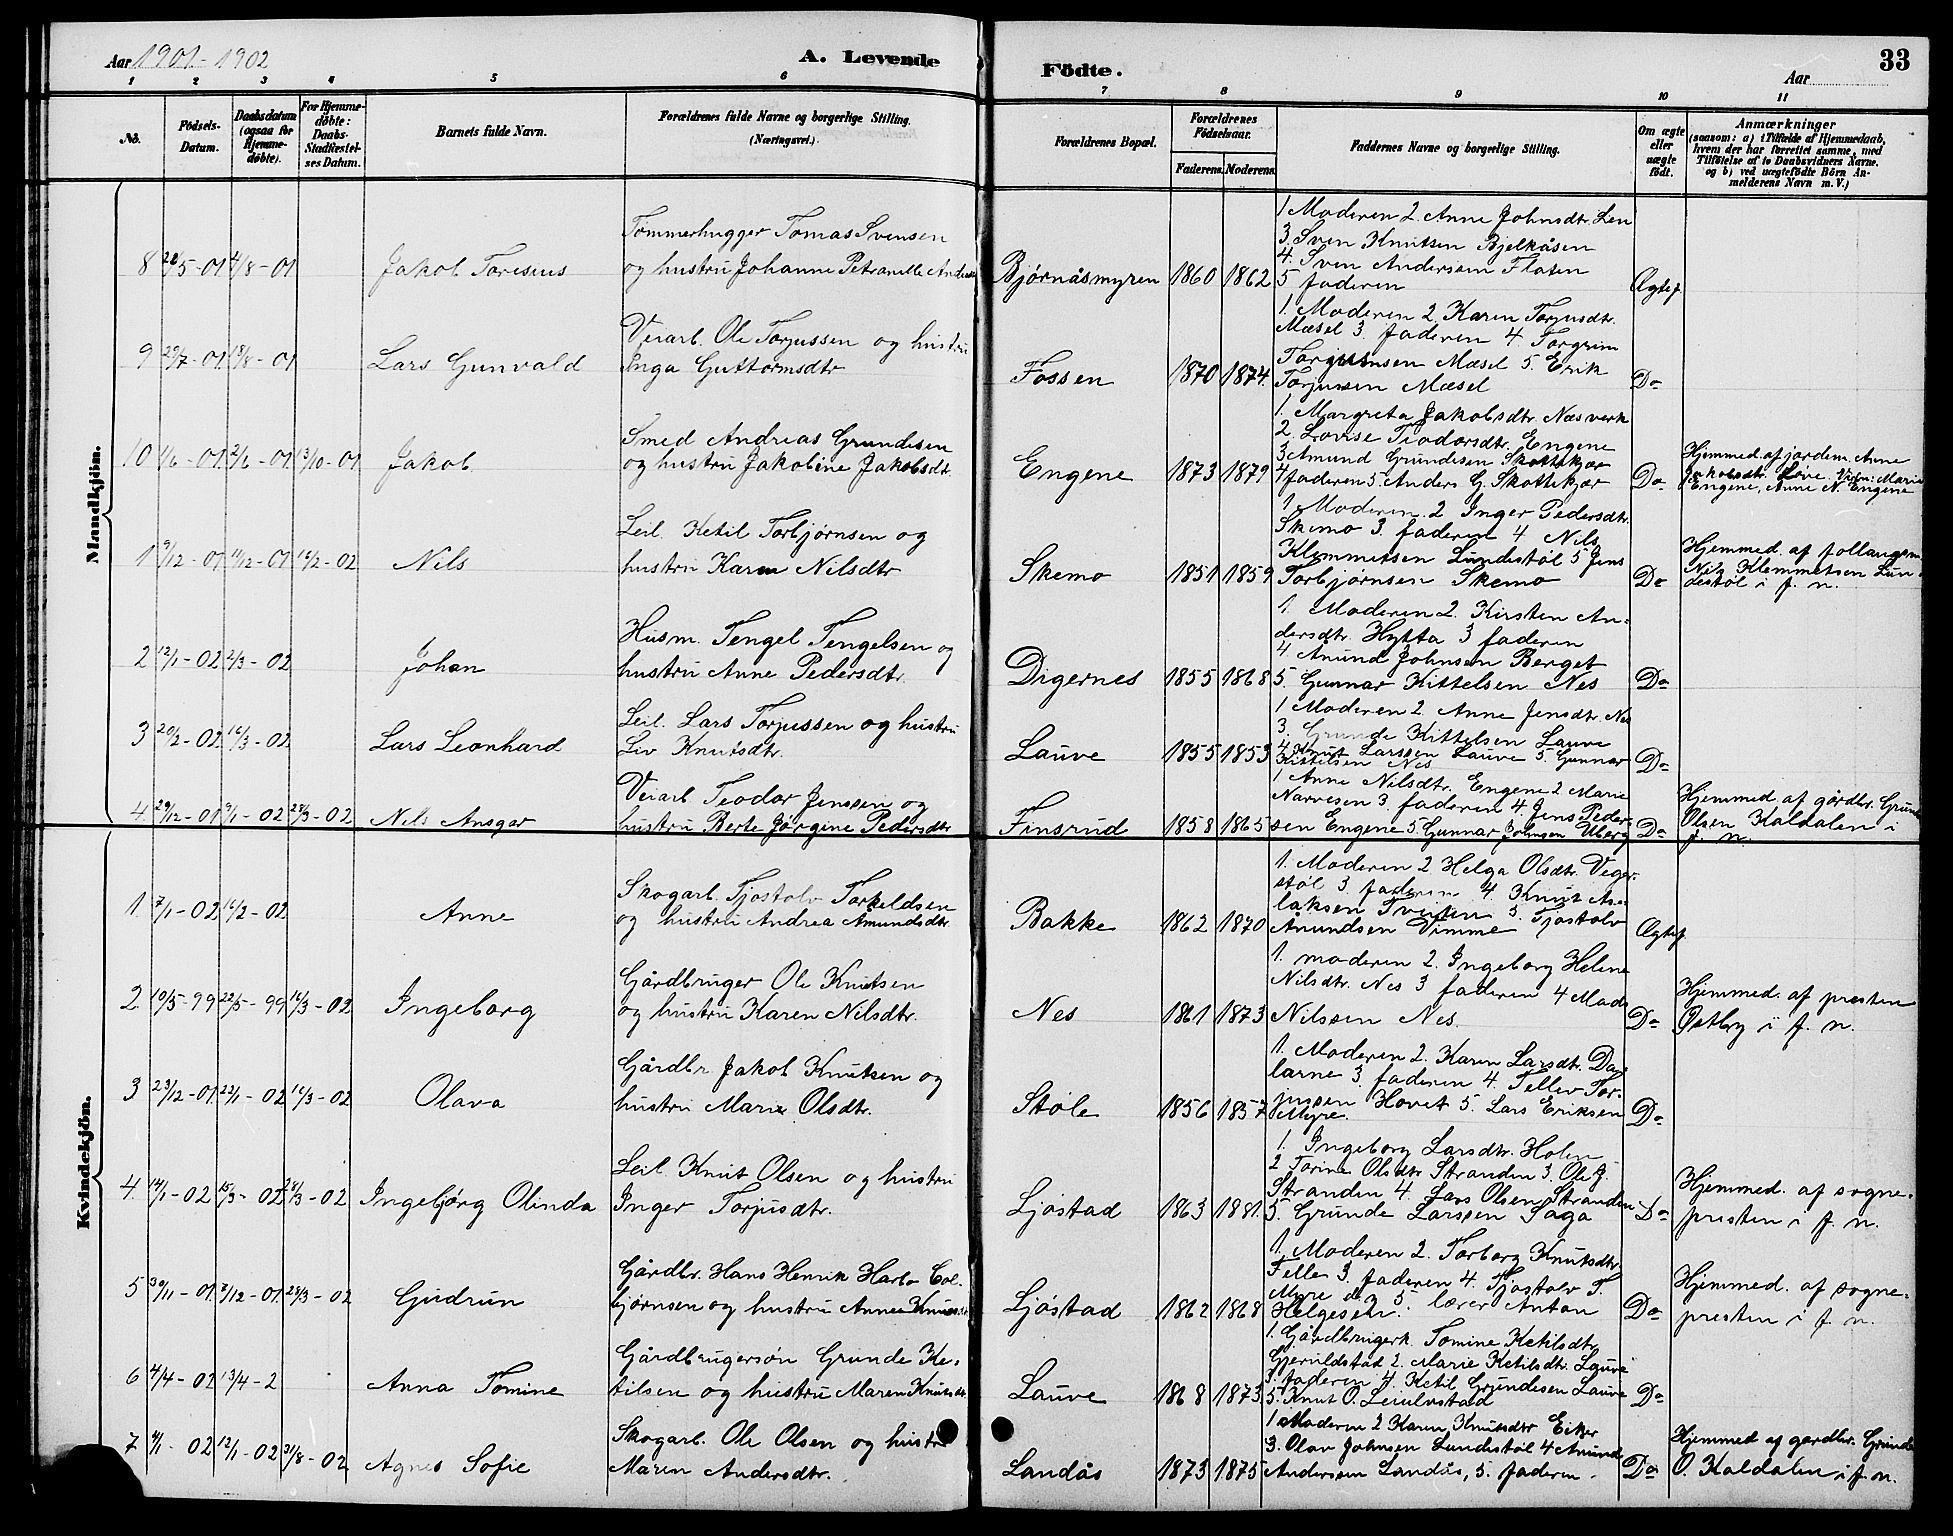 Aar 1901-1902
A. Levende
Födte.
Aar
33
1 2 3 4 5 6 7 8 9 10 11
No.
Födsels-Datum.
Daabsdatum (ogsaa for Hjemme-döbte).
For Hjemme-döbte: Daabs-Stadfæstel-ses Datum.
Barnets fulde Navn.
Forældrenes fulde Navne og borgerlige Stilling. (Næringsvei.)
Forældrenes Bopæl.
Forældrenes Födselsaar.
Faderens. Moderens.
Faddernes Navne og borgerlige Stilling.
Om ægte eller uægte födt.
Anmærkninger
(saasom: a) i Tilfælde af Hjemmedaab,
hvem der har forrettet samme, med
Tilföielse af to Daabsvidners Navne.
og b) ved uægtefödte Börn An-
melderens Navn m. V.)
Mandkjön.
8 28/5-01 4/8-01
Jakob Toresius
Tømmerhugger Tomas Svensen
og hustru Johanne Petranille
Bjørnåsmyren 1860 1862
1 Moderen 2. Anne Johnsdtr. Len
3. Sven Knutsen Bjelkåsen
4. Sven Andersen Flaten
5 faderen
Ægtef
9 29/7-01 18/8-01
Lars Gunvald
Veiarb. Ole Torjussen og hustru
Inga Guttormsdtr
Fossen 1870 1874.
1. Moderen 2. Karen Torjusdtr.
Mæsel 3. faderen 4 Torgrim
Torjussen Mæsel 5. Erik
Torjussen Mæsel
Do
10 1/6-01 2/6-01 13/10-01
Jakob
Smed Andreas Grundesen
og hustru Jakobine Jakobsdtr.
Engene 1873 1879
1. Margreta Jakobsdtr. Næsverk
2. Lovise Teodorsdtr. Engene
3 Amund Grundesen Skottekjær
4 faderen 5. Anders G. Skottekjær
Do
Hjemmed. af jordem. Anne
Jakobsdtr. Løve. Vidn: Marie
Engene, Anne N. Engene
1 9/12-01 11/12-01 16/2-02
Nils
Leil. Ketil Torbjørnsen og
hustru Karen Nilsdtr
Skemo 1851 1859
1 Moderen. 2 Inger Pedersdtr.
Skemo 3. faderen 4 Nils
Klemmetsen Lundestøl 5 Jens
Torbjørnsen Skemo
Do
Hjemmed. af
Nils Klemmetsen Lun-
destøl i f. n.
2 12/1-02 2/3-02
Johan
Husm. Tengel Tengelsen og
hustru Anne Pedersdtr.
Digernes 1855 1868
1. Moderen 2. Kirsten An-
dersdtr. Hytta 3 faderen
4 Anund Johnsen Berget
5. Gunnar Kittelsen Nes
Do
3 20/2-02 16/3-02
Lars Leonhard
Leil. Lars Torjussen og hustru
Liv Knutsdtr.
Lauve 1855 1853
1 Moderen 2 Anne Jensdtr. Nes
3. Grunde Kittelsen Lauve
4 Knut Larssen Lauve 5. Gunnar
Kittelsen Nes
Do
4 29/12-01 9/1-02 23/3-02
Nils Ansgar
Veiarb. Teodor Jenssen og
hustru Berte Jørgine Pedersdtr
Finsrud 1858 1865
1 Anne Nilsdtr. Engene 2 Marie
Narvesen 3. faderen 4. Jens Peder-
sen Engene 5. Gunnar Johnsen Uberg
Do
Hjemmed. af gårdbr. Grunde
Olsen Kaldalen i
f. n.
Kvindekjön.
1. 7/1-02 16/2-02
Anne
Skogarb. Tjostolv Torkeldsen
og hustru Andrea Amundsdtr.
Bakke 1862 1870
1. Moderen 2 Helga Olsdtr. Veger-
støl 3. faderen 4 Knut As-
laksen Tveiten 5. Tjostolv
Anundsen Vimme
Ægtef
2 10/5-99 22/5-99 16/3-02
Ingeborg
Gårdbruger Ole Knutsen
og hustru Karen Nilsdtr.
Nes 1861 1873
1. moderen 2. Ingeborg Helene
Nilsdtr. Nes 3 faderen 4 Mads
Nilssen Nes.
Do
Hjemmed. af presten
Østby i f. n.
3 23/12-01 22/1-02 16/3-02
Olava
Gårdbr. Jakob Knutsen og
hustru Marie Olsdtr.
Støle 1856 1857
1. Moderen 2. Karen Larsdtr. Da-
larne 3. faderen 4. Tellev Tor-
jussen Hovet 5. Lars Eriksen
Myre.
Do
4. 14/1-02 15/3-02 23/3-02
Ingebjørg Olinda
Leil. Knut Olsen og hustru
Inger Torjusdtr.
Ljøstad 1863 1881.
1. Ingeborg Larsdtr. Holen
2 Torine Olsdtr. Stranden 3. Ole G.
Stranden 4. Lars Olsen Stranden
5. Grunde Larssen Saga
Do
Hjemmed. af sogne-
presten i f. n.
5 30/11-01. 7/12-01. 23/3-02
Gudrun
Gårdbr. Hans Henrik Harbo Col-
bjørnsen og hustru Anne Knutsdtr
Ljøstad 1862 1868
1. Moderen 2. Torborg Knutsdtr.
Felle 3. faderen 4. Tjostolv T.
Myre 5. lærer Anton
Helgesen.
Do
Hjemmed. af sogne-
presten i f. n.
6 4/4-02 13/4-2
Anna Tomine
Gårdbrugersøn Grunde Ke-
tilsen og hustru Maren Knutsdtr
Lauve 1868 1873
1. Gårdbrugerk. Tomine Ketilsdtr.
Gjeruldstad 2. Marie Ketilsdtr. Lauve
3. faderen 4. Ketil Grundesen Lauve
5. Knut O. Leiulvstad
Do
7 4/1-02 12/1-02 31/8-02
Agnes Sofie
Skogarb. Ole Olsen og hustru
Maren Andersdtr.
Landås 1873 1875
1 Moderen 2 Karen Knutsdtr Eiker
3. Olav Johnsen Lundestøl 4 Anund
Anderssen Landås, 5. faderen.
Do
Hjemmed af gardbr. Grunde
O. Kaldalen i f. n.